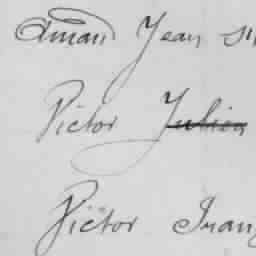 Aman Jean
Victor Julien
Victor